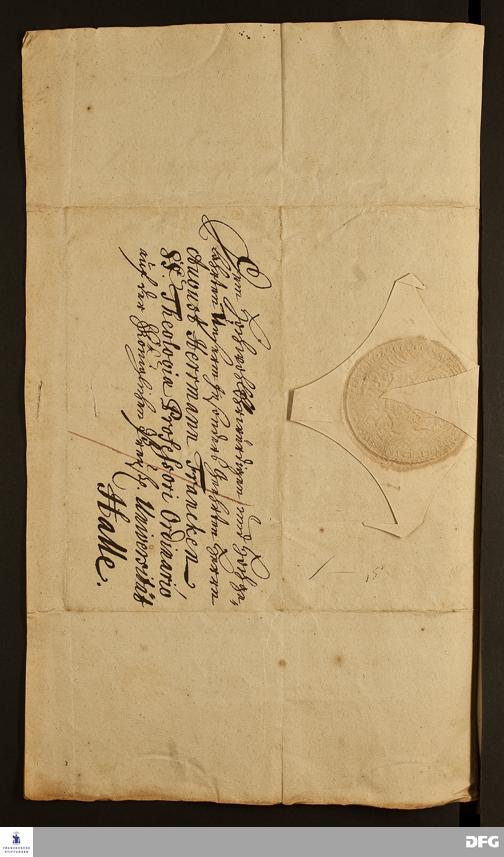 Dem HochwohlEhrwürdigen und Hochge-
lahrten Unserm besonders Geehrten Herrn
August Herrmann Francken
SS. Theologiæ Professori Ordinario
auf der Königlichen Universität
Halle.
FRANCKESCHE
STIFTUNGEN
DFG